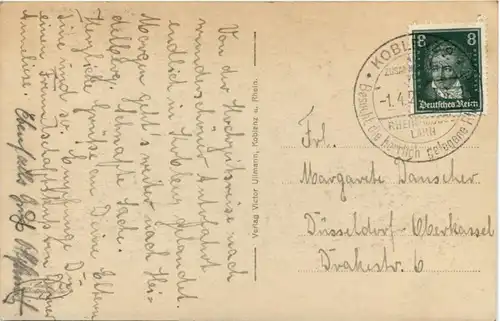 Von der Hochzeitsreise nach
wunderschöner Autofahrt
endlich in Koblenz gelandet.
Morgen geht's weiter nach Hei-
delberg. Fabelhafte Sache.
Herzliche Grüße an Deine Eltern
und sei so.
einen Freundschaftskuss von
Anneliese.
Ebenfalls Gruß
Verlag Victor Ullmann, Koblenz a. Rhein.
KOBLENZ
-1.4.
RHEIN
LAHN
Besucht das herrlich gelegene
8 8
Deutsches Reich
Frl.
Margarete Danscher
Düsseldorf-Oberkassel
Drakestr. 6